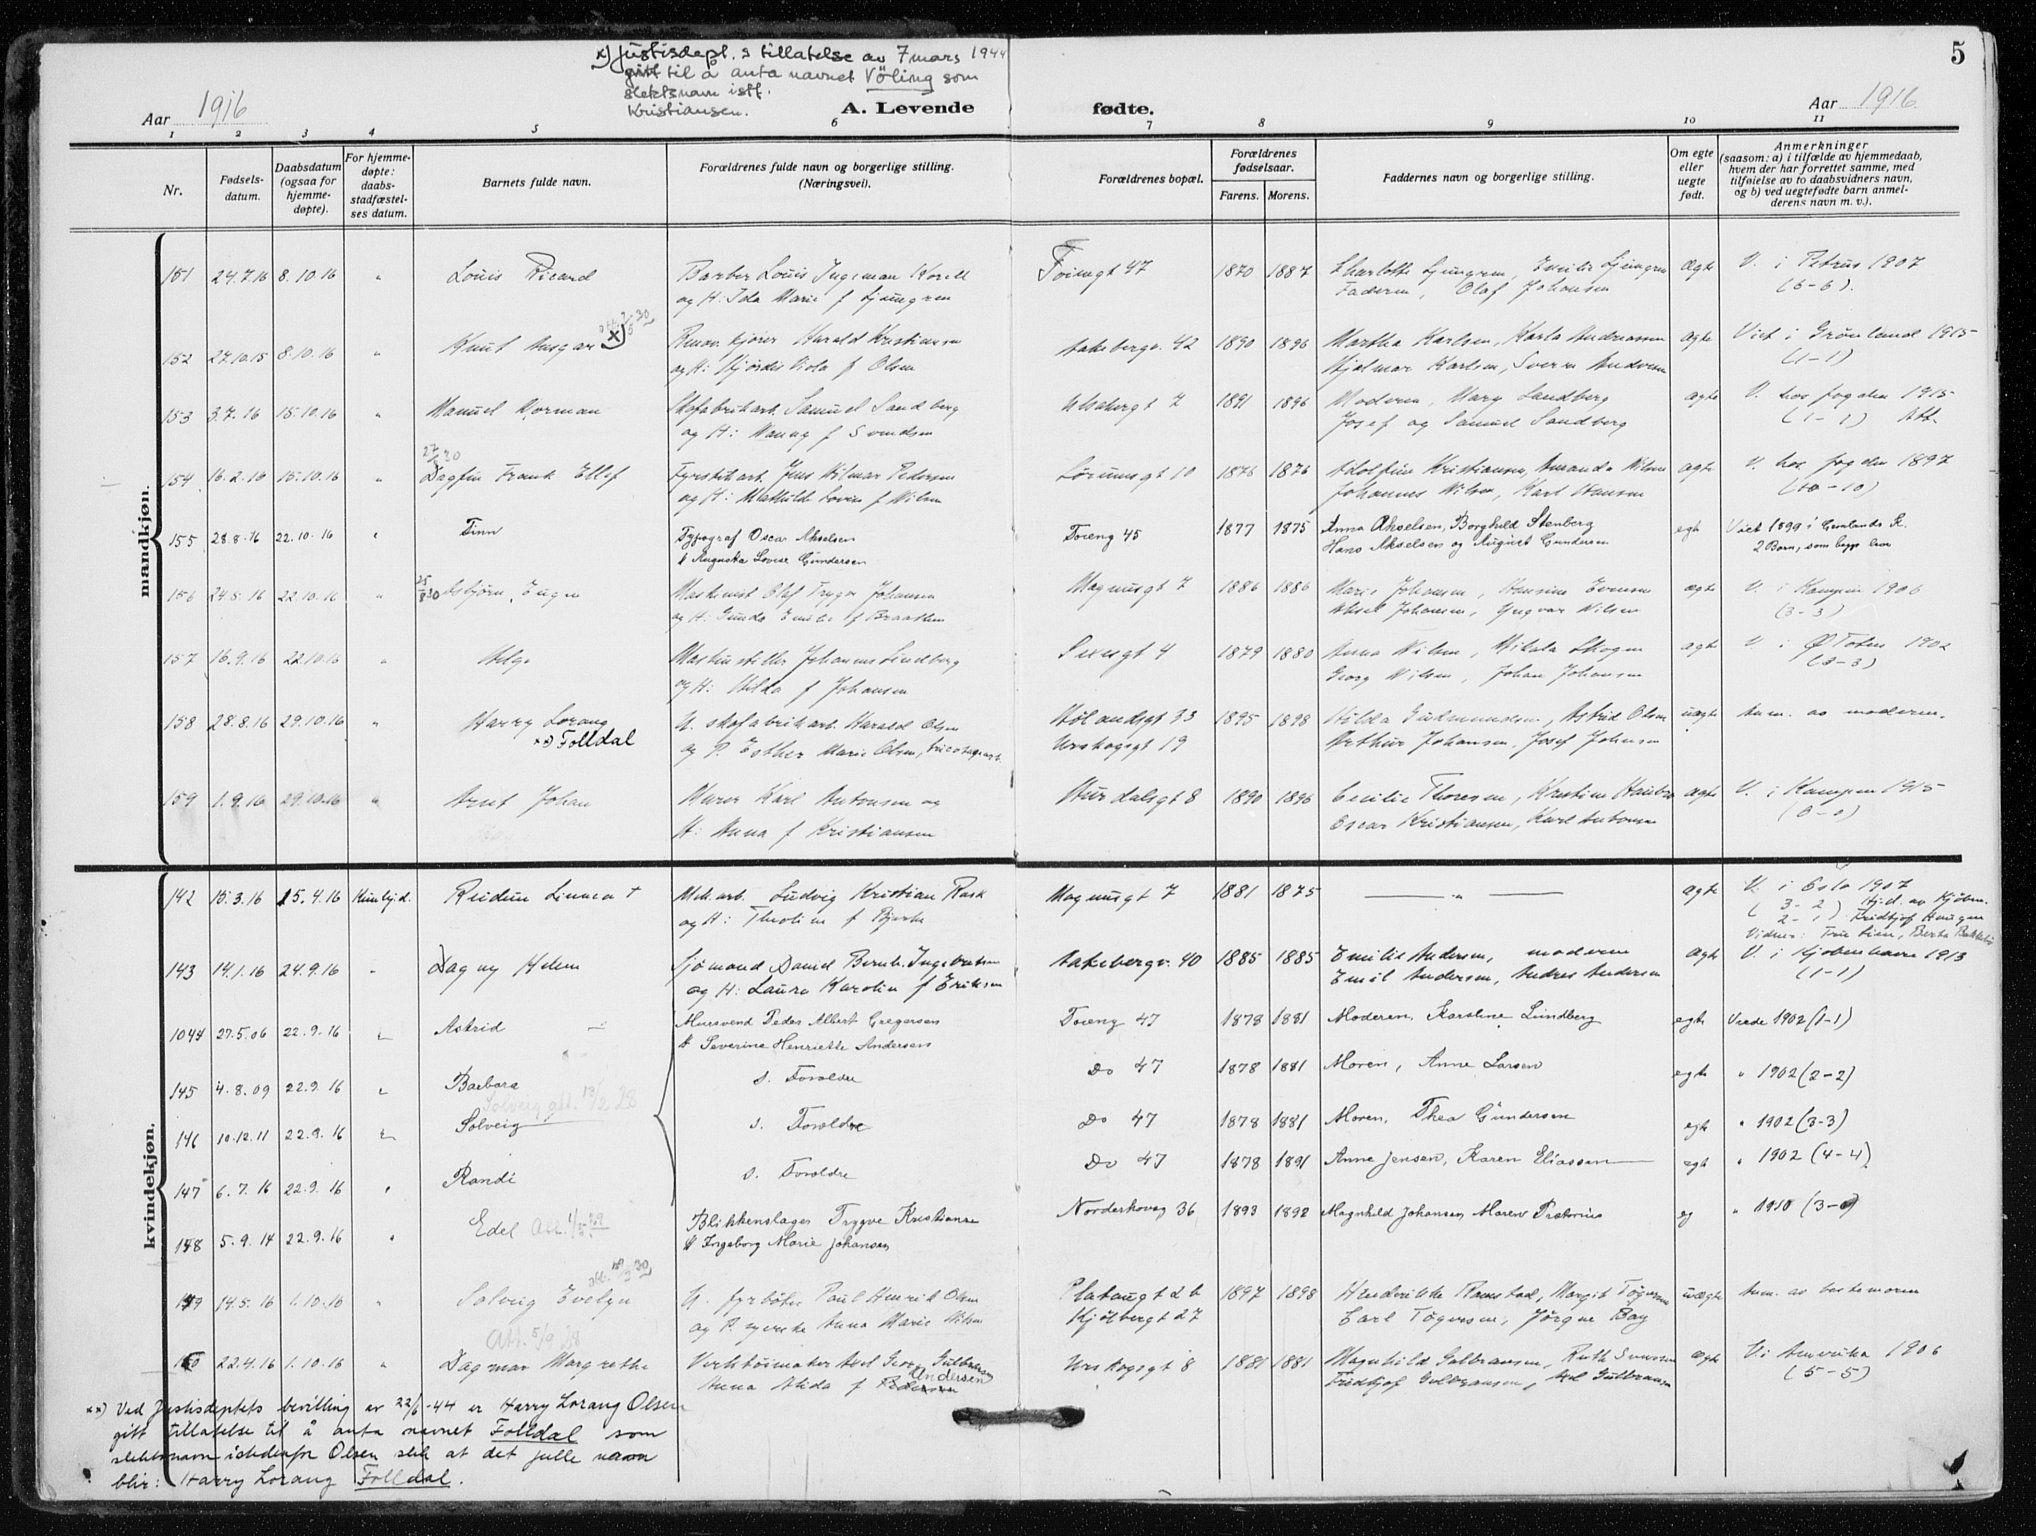 x) Justisdept.s tillatelse av 7 mars 1944
gitt til å anta navnet Völing som
slektsnavn istf.
Kristiansen.
5
Aar 1916
A. Levende fødte.
Aar 1916
1 2 3 4 5 6 7 8 9 10 11
Nr.
Fødsels-
datum.
Daabsdatum
(ogsaa for
hjemme-
døpte).
For hjemme-
døpte:
daabs-
stadfæstel-
ses datum.
Barnets fulde navn.
Forældrenes fulde navn og borgerlige stilling.
(Næringsvei).
Forældrenes bopæl.
Forældrenes
fødselsaar.
Farens. Morens.
Faddernes navn og borgerlige stilling.
Om egte
eller
uegte
født.
Anmerkninger
(saasom: a) i tilfælde av hjemmedaab,
hvem der har forrettet samme, med
tilføielse av to daabsvidners navn,
og b) ved uegtefødte barn anmel-
derens navn m. v.).
mandkjøn.
151 24.7.16 8.10.16 " Louis Ricard Barber Louis Ingeman 1870 1887 Charlotte Ljungren, Emilie Ljungren Ægte V. i Petrus 1907
og H: Ida Marie f Ljungren Faderen, Olaf Johansen (6-6).
152 27.10.15 8.10.16 " Knut Ansgar x) Harald Kristiansen Aakebergv. 42 1890 1896 Martha Karlsen, Karla Andreassen ægte Viet i Grønland 1915
og H: Hjørdis Viola f Olsen Hjalmar Karlsen, (1-1)
153 3.7.16 15.10.16 " Manuel Norman Skofabrikarb. Samuel Sandberg 1891 1896 Moderen, Mary Sandberg ægte V. hos fogden 1915
og H: Nanny f Svendsen Josef og Samuel Sandberg (1-1) Att.
27/8 30
154 16.2.16 15.10.16 " Dagfin Frank Ellef Fyrstikarb. Jens Hilmar Pedersen Lørumsgt 10 1876 1876 Adolfine Kristiansen, Amanda Nilsen ægte V. hos fogden 1897
og H: Mathilde Lovise f Nilsen Johannes Nilsen, Karl Hansen (10-10)
155 28.8.16 22.10.16 " Finn Typograf Oscar Akselsen Toieng 45 1877 1875 Anna Akselsen, Borghild Stenberg egt Viet 1899 i
& Augusta Lovise Gundersen Hans Akselsen og August Gundersen 2 Barn, som begge lever
156 24.8.16 22.10.16 " Asbjørn Eugen Maskinist Olaf Trygve Johansen Magnusgt 7 1886 1886 Marie Johansen, Hansine Evensen ægte V. i Kampen 1906
og H: Gunda Emilie f Braathen Aksel Johansen, Yngvar Nilsen (3-3)
157 16.9.16 22.10.16 " Helge Maskinstiller Johannes Lindberg 1879 1880 Anna Nilsen, Mikala Skogen ægte V. i Ø Toten 1902
og H: Hilda f Johansen Georg Nilsen, Johan Johansen (3-3)
158 28.8.16 29.10.16 " Harry Lorang U. skofabrikarb. Harald Olsen Hølandsgt 33 1895 1898 Hilda Gudmundsen, Astrid Olsen uægte Anm. as moderen.
xx) Folldal og P. Esther Marie Olsen, tricotagearb. Urskogsgt 19 Arthur Johansen, Josef Johansen
159 1.9.16 29.10.16 " Arnt Johan Murer Karl Antonsen og Hurdalsgt 8 1890 1896 Cecilie Thoresen, Kristine ægte V. i Kampen 1915
H: Anna f Kristiansen Oscar Kristiansen, Karl Antonsen (0-0)
kvindekjøn.
142 10.3.16 15.4.16 Reidun Linnea † Mek. arb. Ludvig Kristian Rask Magnusgt 7 1881 1875 — " — ægte V. i Oslo 1907
og H: Tholine f Bjerke (3-2) Hjd. av
2-1) Fridtjof Haugen
143 14.1.16 24.9.16 " Dagny Helene Sjømand Daniel Bernh. Ingebretsen Aakebergv. 40 1885 1885 Emilie Andersen, moderen ægte V. i Kjøbenhavn 1913
og H: Laura Karoline f Eriksen Emil Andersen, Andreas Andersen (1-1)
1044 27.5.06 22.9.16 " Astrid — Mursvend Peder Albert Gregersen Toieng 47 1878 1881 Moderen, Karoline Lundberg egte Viede 1902 (1-1)
& Severine Henriette Andersen
145 4.8.09 22.9.16 " Barbara s. Foreldre Do 47 1878 1881 Moren, Anne Larsen egte " 1902 (2-2)
Solveig att. 13/2 28
146 10.12.11 22.9.16 " Solveig s. Foreldre Do 47 1878 1881 Moren, Thea Gundersen egt " 1902 (3-3)
147 6.7.16 22.9.16 " Randi s. Foreldre Do 47 1878 1891 Anne Jensen, Karen Eliassen egt " 1902 (4-4)
148 5.9.14 22.9.16 " Edel Att. Blikkenslager Trygve Kristiansen Norderhovsg 36 1893 1892 Magnhild Johansen, Maren eg " 1910
& Ingeborg Marie Johansen
149 14.5.16 1.10.16 " Solveig Evelyn U. fyrbøter Paul Henrik Olsen Platousgt 2 b 1897 1898 Hendrikke Ramstad, Margit uægte Anm. as bestemoren
Att. 5/9 28 og P. syerske Anna Marie Nilsen Kjølbergt 27 Carl Jørgine Bay
150 22.4.16 1.10.16 " Dagmar Margrethe Verktøimaker Axel Georg Gulbransen Urskogsgt 8 1881 1881 Magnhild Gulbransen, Ruth ægte V. i Amerika 1906
Anna Alida f Pedersen Andersen Fridtjof Gulbransen, Axel Gulbransen (5-5)
xx) Ved Justisdeptets bevilling av 22/6-44 er Harry Lorang Olsen
gitt tillatelse til å anta navnet Folldal som
slektsnavn istedenfor Olsen slik at det fulle navn
blir: Harry Lorang Folldal.